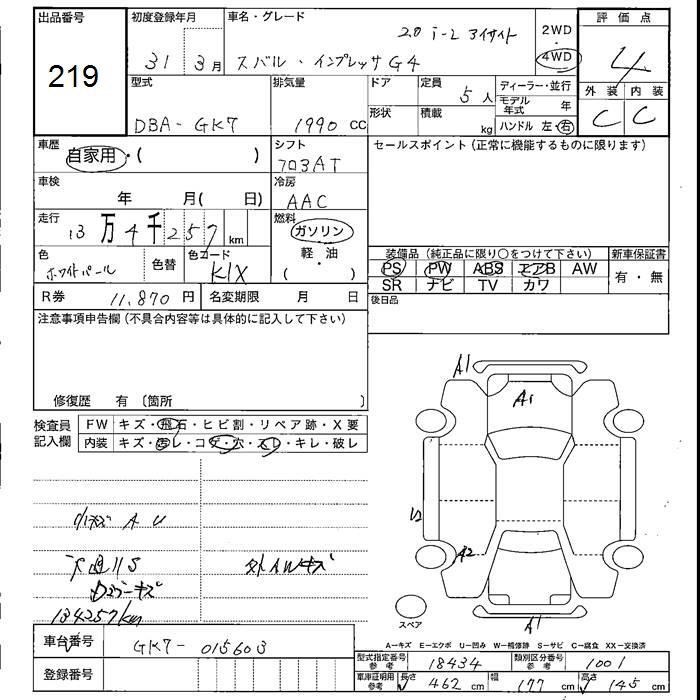 出品番号 初度登録年月 車名・グレード 2.0 i-L アイサイト 2WD・4WD 評価点
219 31年 3月 スバル・インプレッサG4 4
型式 排気量 ドア 定員 5人 ディーラー・並行 外装 内装
DBA-GK7 1990 cc 形状 積載 kg モデル年式 年 C C
ハンドル 左・右
車歴 自家用・( ) シフト 7ロ3AT セールスポイント(正常に機能するものに限ります)
車検 年 月( 日) 冷房 AAC
走行 13万4千257km 燃料 ガソリン・軽油 ( )
色 ホワイトパール 色替 色コード K1X 装備品(純正品に限り○をつけて下さい) 新車保証書
PS PW ABS エアB AW 有・無
SR ナビ TV カワ
R券 11,870円 名変期限 月 日 後日品
注意事項申告欄(不具合内容等は具体的に記入して下さい)
修復歴 有〔箇所 〕
検査員記入欄 FW キズ・飛石・ヒビ割・リペア跡・X要
内装 キズ・汚レ・コゲ・穴・スレ・キレ・破レ
A1
A1
A2
A1
スペア
外AWキズ
134257km
A-キズ E-エクボ U-凹み W-補修跡 S-サビ C-腐食 XX-交換済
車台番号 GK7-015603
型式指定番号参考 18434 類別区分番号参考 1001
登録番号 車庫証明用参考 長さ 462 cm 幅 177 cm 高さ 145 cm